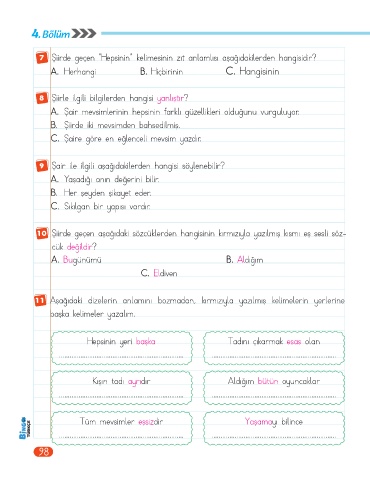 4.Bölüm
7 Şiirde geçen "Hepsinin" kelimesinin zıt anlamlısı aşağıdakilerden hangisidir?
A. Herhangi B. Hiçbirinin C. Hangisinin
8 Şiirle ilgili bilgilerden hangisi yanlıştır?
A. Şair mevsimlerinin hepsinin farklı güzellikleri olduğunu vurguluyor.
B. Şiirde iki mevsimden bahsedilmiş.
C. Şaire göre en eğlenceli mevsim yazdır.
9 Şair ile ilgili aşağıdakilerden hangisi söylenebilir?
A. Yaşadığı anın değerini bilir.
B. Her şeyden şikayet eder.
C. Sıkılgan bir yapısı vardır.
10 Şiirde geçen aşağıdaki sözcüklerden hangisinin kırmızıyla yazılmış kısmı eş sesli söz-
cük değildir?
A. Bugünümü B. Aldığım
C. Eldiven
11 Aşağıdaki dizelerin anlamını bozmadan, kırmızıyla yazılmış kelimelerin yerlerine
başka kelimeler yazalım.
Hepsinin yeri başka Tadını çıkarmak esas olan
Kışın tadı ayrıdır Aldığım bütün oyuncaklar
Tüm mevsimler eşsizdir Yaşamayı bilince
BİNGO
TÜRKÇE
98